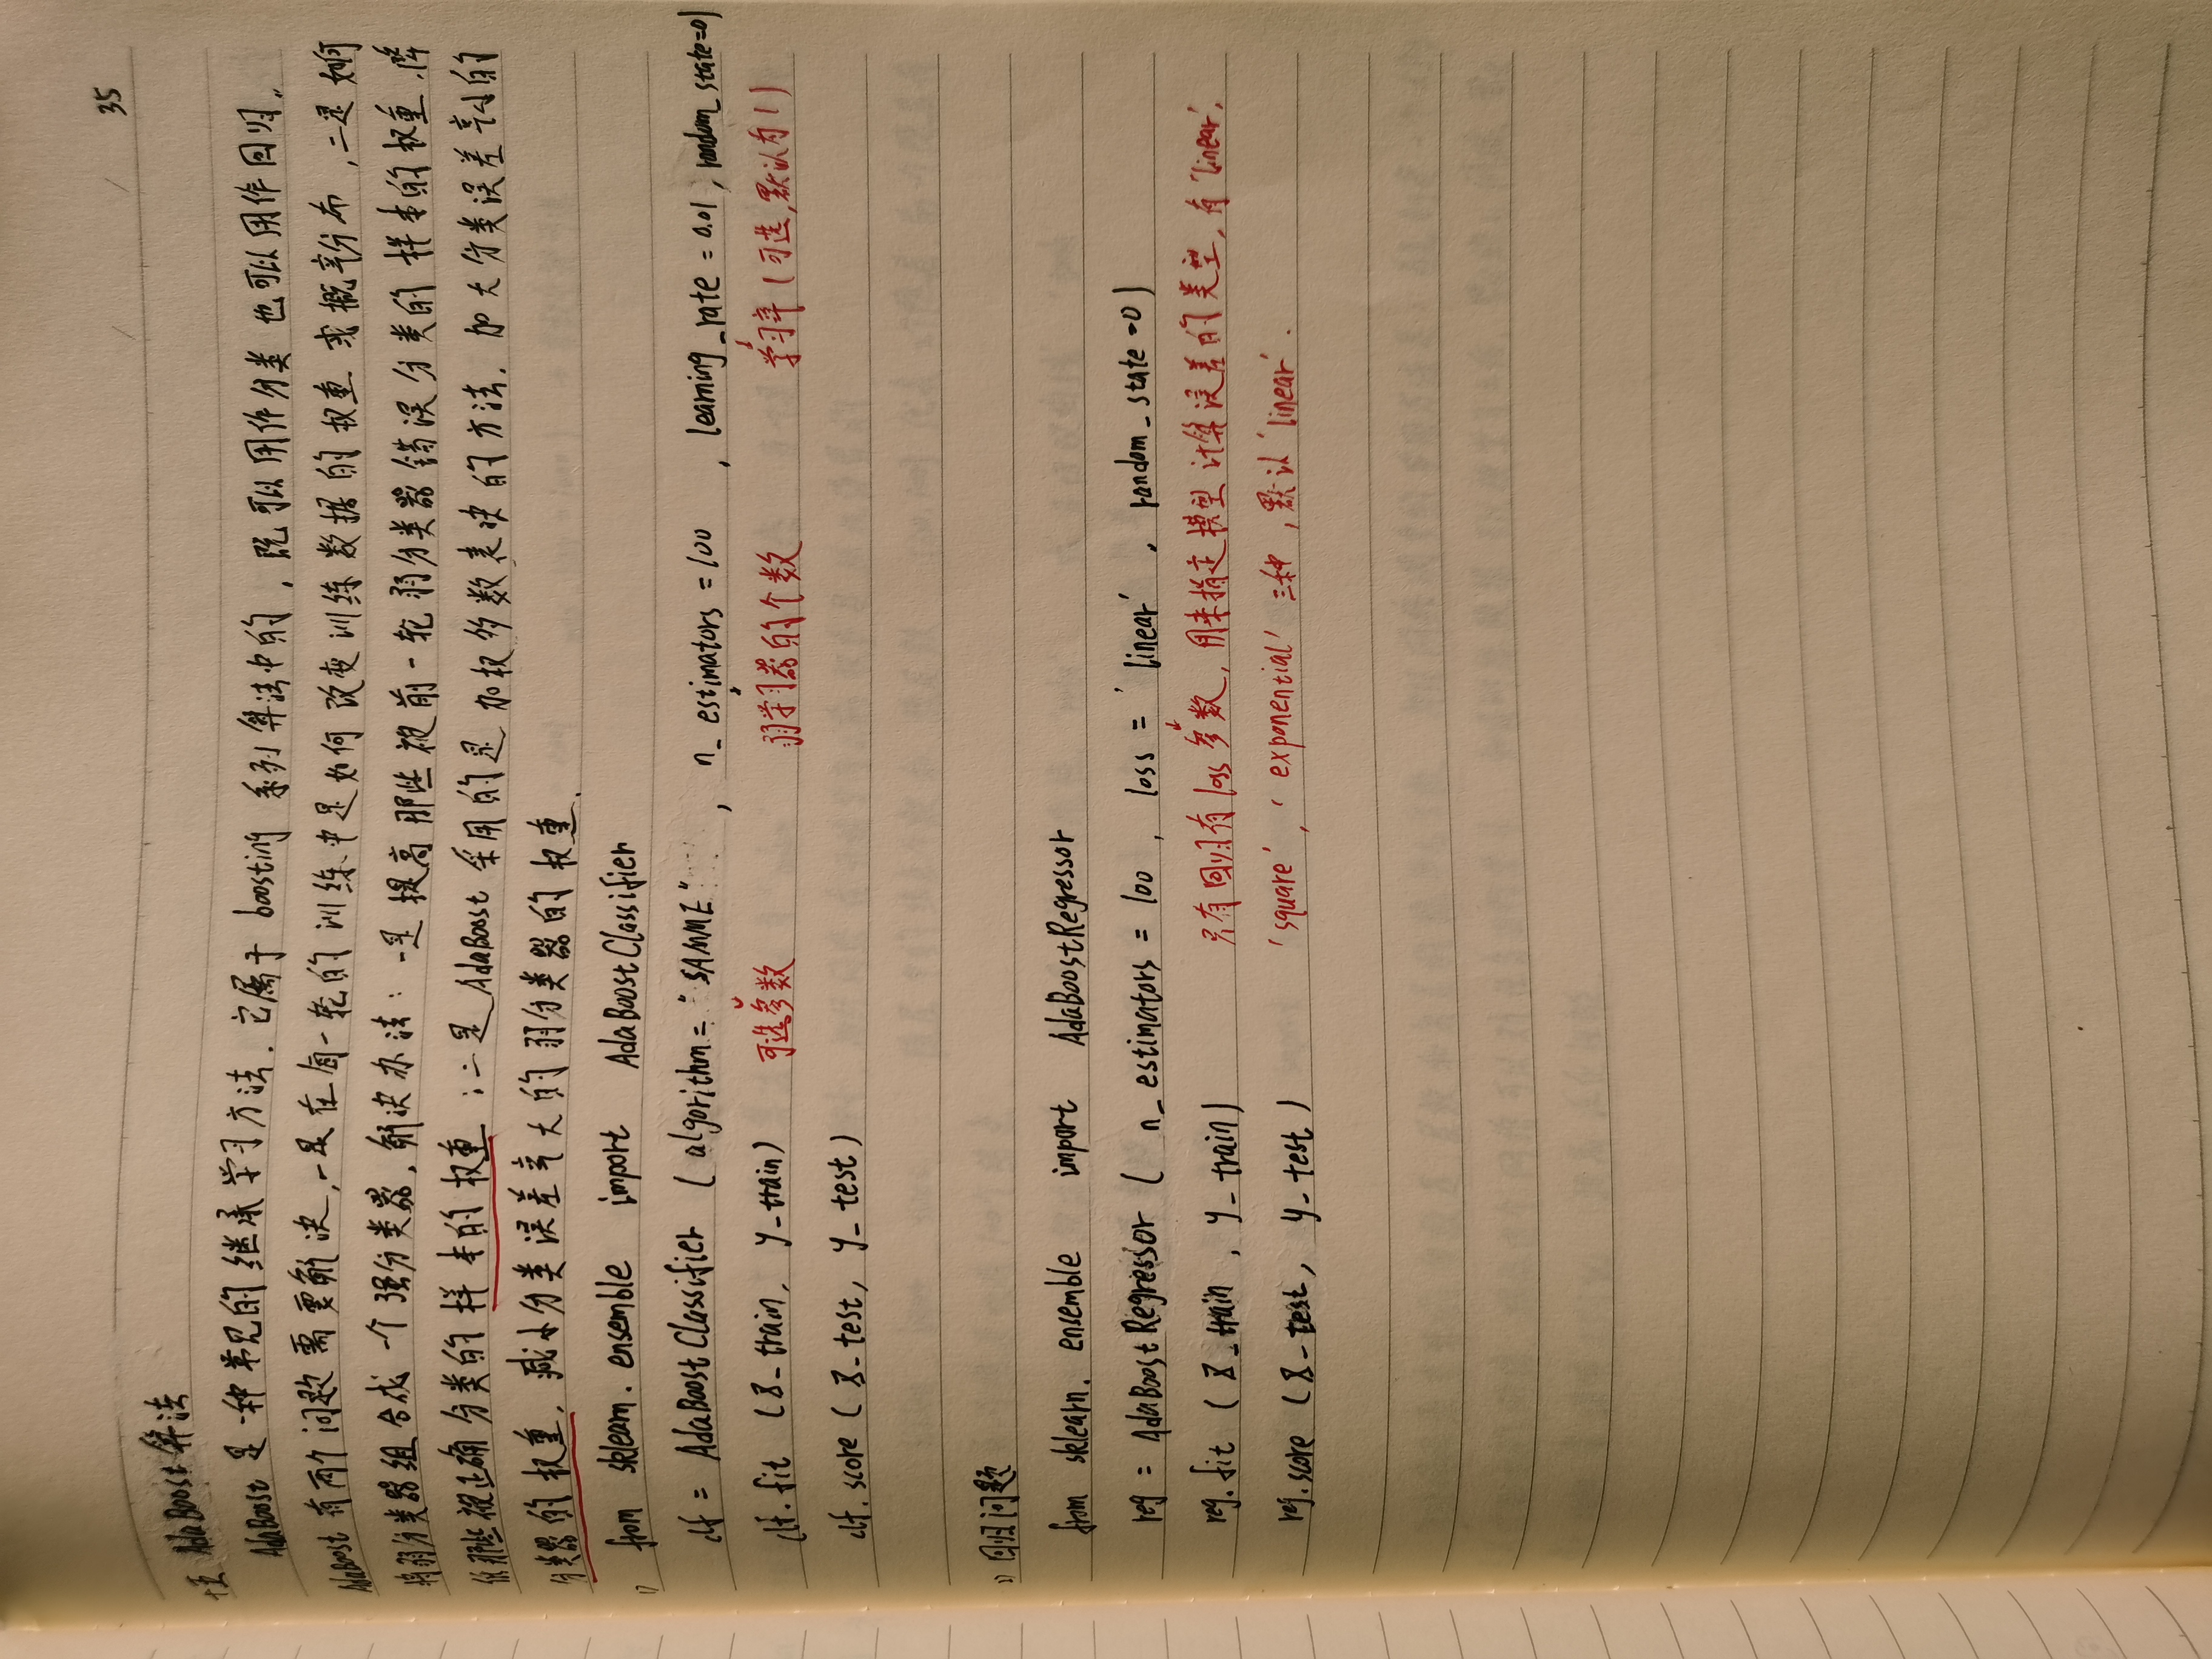 35
十五 AdaBoost算法
AdaBoost 是一种常见的继承学习方法. 它属于 boosting 系列算法中的, 既可以用作分类 也可以用作回归.
AdaBoost 有两个问题需要解决, 一是在每一轮的训练中是如何改变训练数据的权重或概率分布, 二是如何
将弱分类器组合成一个强分类器, 解决办法: 一是提高那些被前一轮弱分类器错误分类的样本的权重. 降
低那些被正确分类的样本的权重; 二是AdaBoost 采用的是加权多数表决的方法. 加大分类误差率小的
分类器的权重. 减小分类误差率大的弱分类器的权重.
1) from sklearn.ensemble import AdaBoostClassifier
clf = AdaBoostClassifier (algorithm="SAMME", n_estimators=100, learning_rate=0.01, random_state=0)
可选参数 弱学习器的个数 学习率(可选,默认为1)
clf.fit (X_train, y_train)
clf.score (X_test, y_test)
2) 回归问题
from sklearn.ensemble import AdaBoostRegressor
reg = AdaBoostRegressor (n_estimators=100, loss='linear', random_state=0)
只有回归有loss参数, 用来指定模型计算误差的类型, 有'linear',
reg.fit (X_train, y_train)
'square', 'exponential' 三种, 默认'linear'.
reg.score (X_test, y_test)